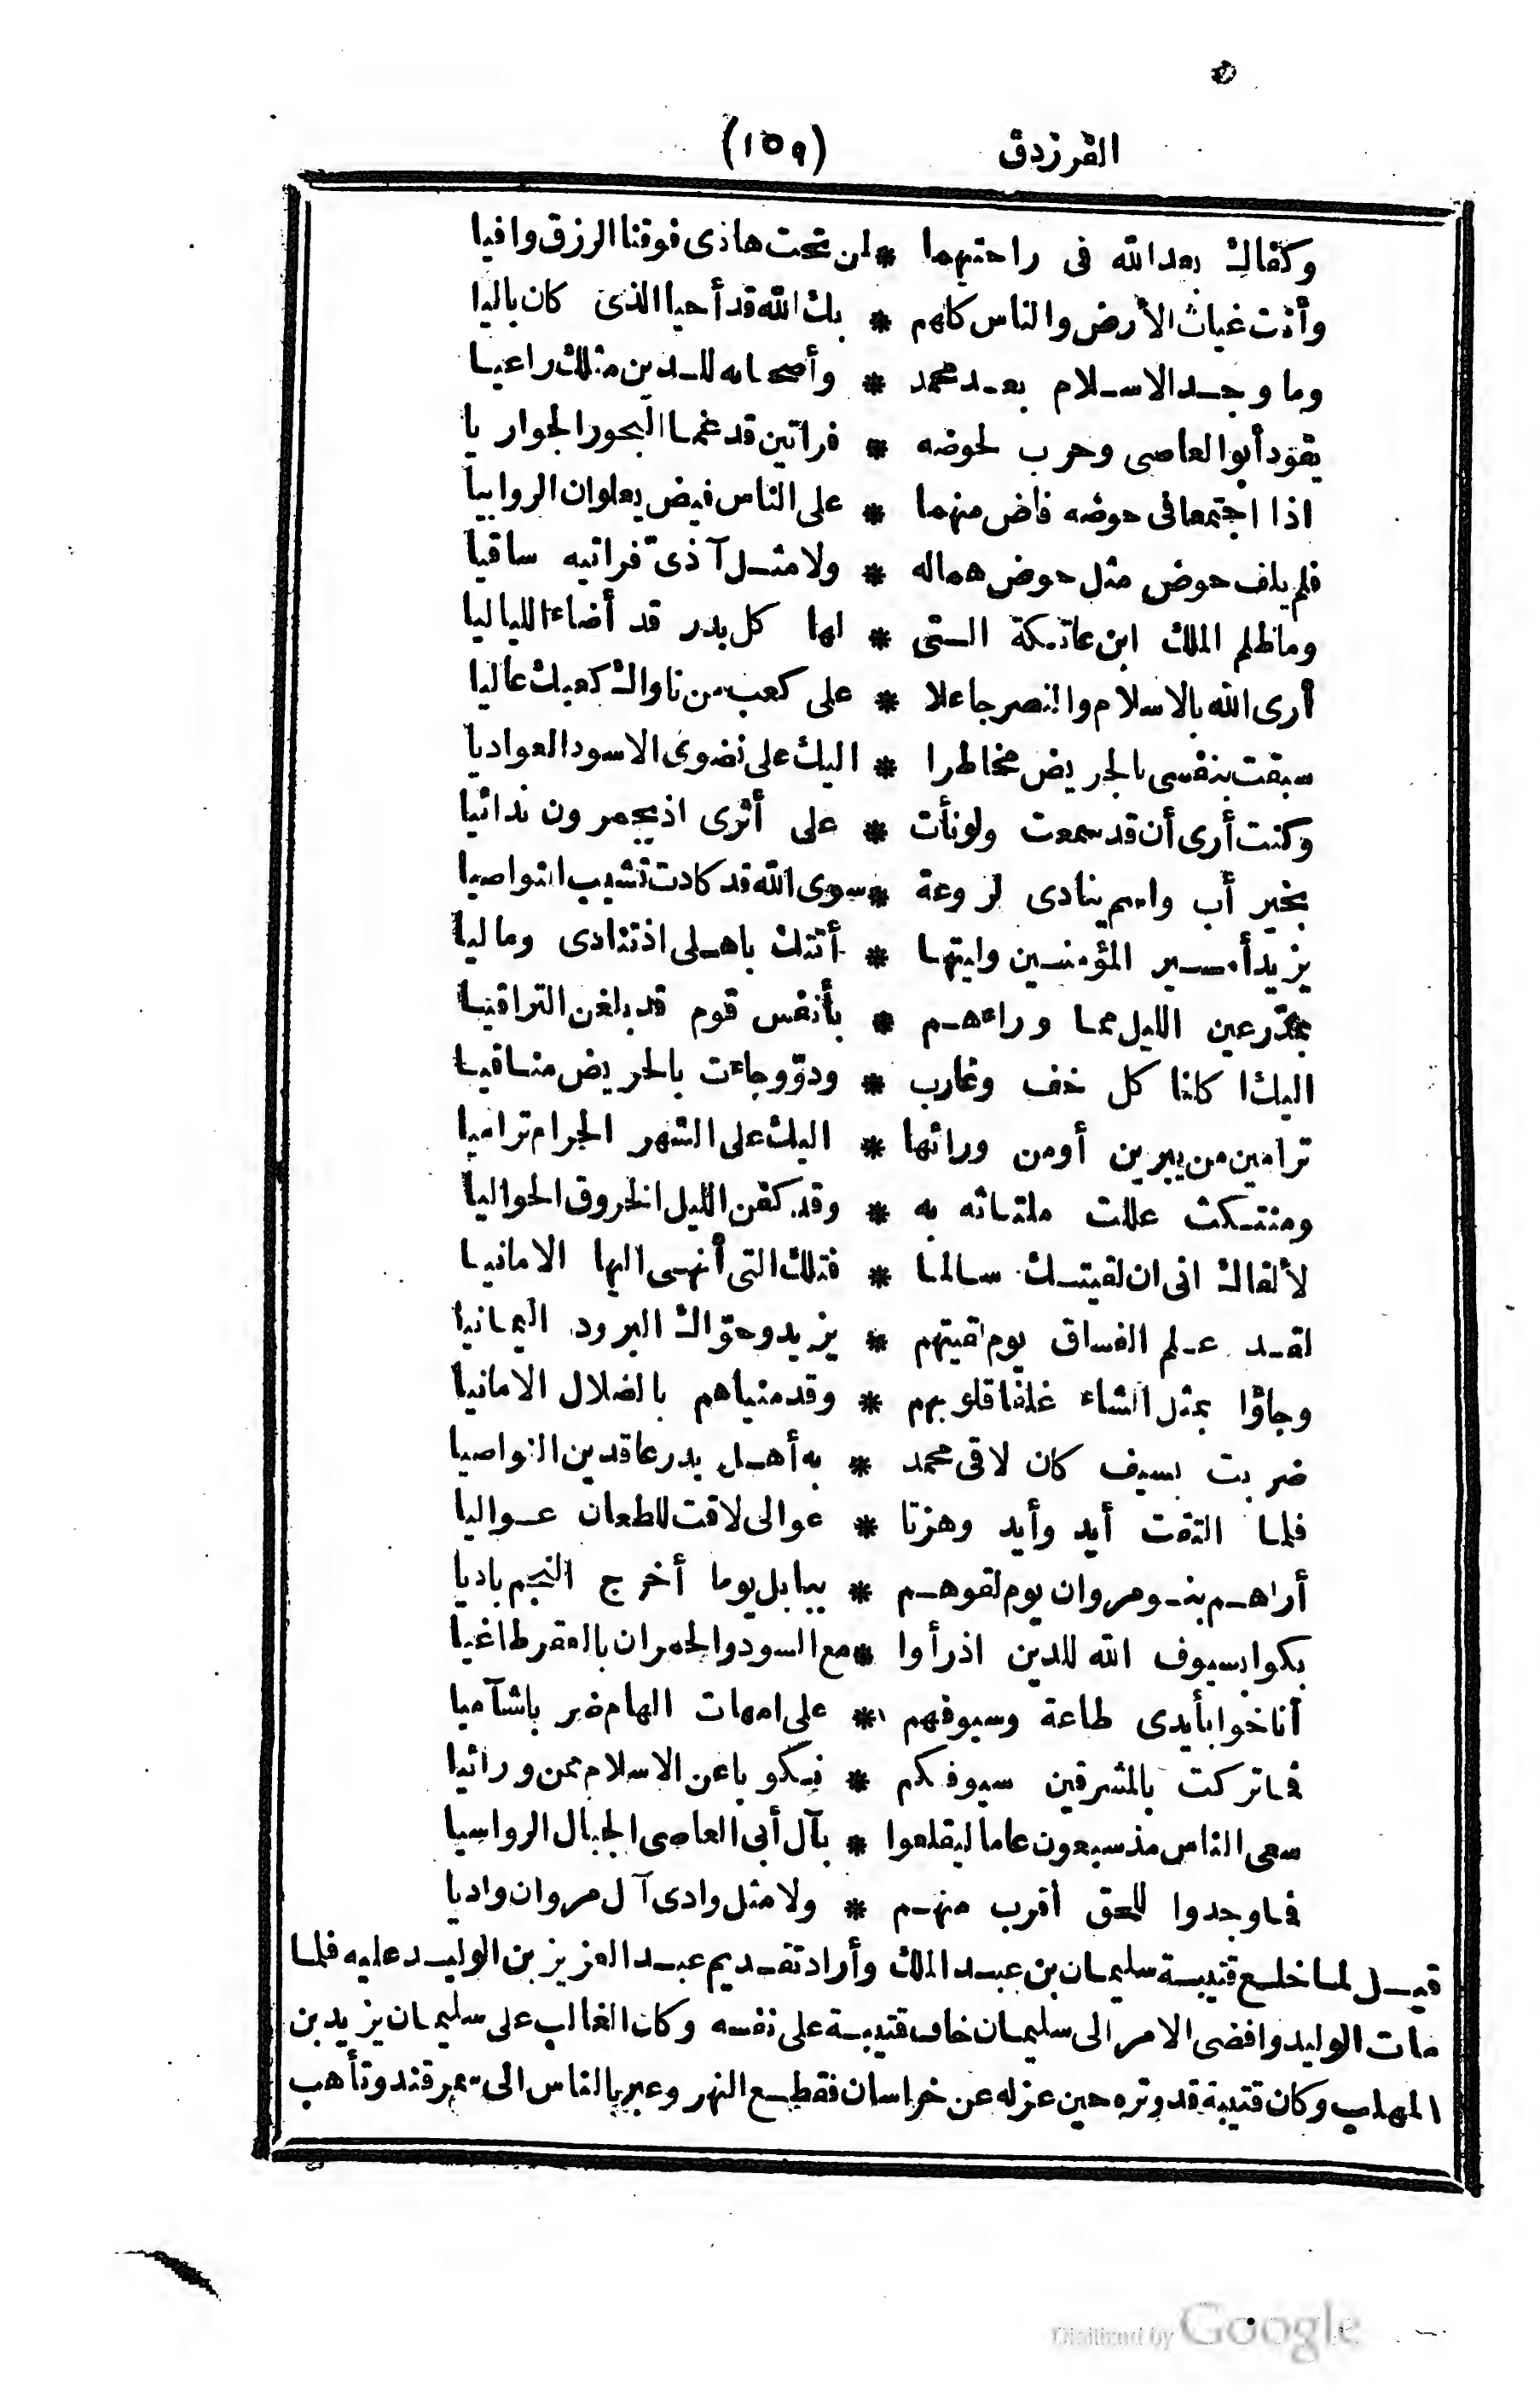 الفرزدق (١٥٩)
وكفاك بعد الله فى راحتيهما * لمن تحت هاذى فوقنا الرزق وافيا
وأنت غياث الأرض والناس كلهم * بك الله قد أحيا الذى كان باليا
وما وجد الاسلام بعد محمد * وأصحابه للدين مثلك راعيا
يقود أبو العاصى وحرب لحوضه * فراتين قد غما البحور الجواريا
اذا اجتمعا فى حوضه فاض منهما * على الناس فيض يعلوان الروابيا
فلم يلف حوض مثل حوض هماله * ولا مثل آذىّ فراتيه ساقيا
وما ظلم الملك ابن عاتكة التى * لها كل بدر قد أضاء اللياليا
أرى الله بالاسلام والنصر جاعلا * على كعب من ناواك كعبك عاليا
سبقت بنفسى بالجريض مخاطرا * اليك على نضوى الاسود العواديا
وكنت أرى أن قد سمعت ولو نأت * على أثرى اذ يجمرون ندائيا
بخير أب واسم ينادى لروعة * سوى الله قد كادت تشيب النواصيا
يزيد أمير المؤمنين وليتها * أتتك باهلى اذ تنادى وماليا
بمدّرعين الليل مما وراءهم * بأنفس قوم قد بلغن التراقيا
اليك ا كلنا كل خف وغارب * ودوّ وجاءت بالجريض مناقيا
ترامين من يبرين أو من ورائها * اليك على الشهر الحرام تراميا
ومنتكث عللت ملتاثه به * وقد كفن الليل الخروق الخواليا
لألقاك انى ان لقيتك سالما * فتلك التى أنهى اليها الامانيا
لقد علم الفساق يوم لقيتهم * يزيد وحوّاك البرود اليمانيا
وجاؤا بمثل الشاء غلفا قلوبهم * وقد منياهم بالضلال الامانيا
ضربت بسيف كان لاقى محمد * به أهل بدر عاقدين النواصيا
فلما التقت أيد وأيد وهزتا * عوالى لاقت للطعان عواليا
أراهم بنو مروان يوم لقوهم * ببابل يوما أخرج النجم باديا
بكوا بسيوف الله للدين اذ رأوا * مع السود والحمران بالعقر طاغيا
أناخوا بأيدى طاعة وسيوفهم * على امهات الهام ضربا شآميا
فما تركت بالمشرقين سيوفكم * نكوبا عن الاسلام ممن ورائيا
سعى الناس مذ سبعون عاما ليقلعوا * بآل أبى العاصى الجبال الرواسيا
فما وجدوا للحق أقرب منهم * ولا مثل وادى آل مروان واديا
قيل لما خلع قتيبة سليمان بن عبد الملك وأراد تقديم عبد العزيز بن الوليد عليه فلما
مات الوليد وافضى الامر الى سليمان خاف قتيبة على نفسه وكان الغالب على سليمان يزيد بن
المهلب وكان قتيبة قد وتره حين عزله عن خراسان فقطع النهر وعبر بالناس الى سمرقند وتأهب
Digitized by Google